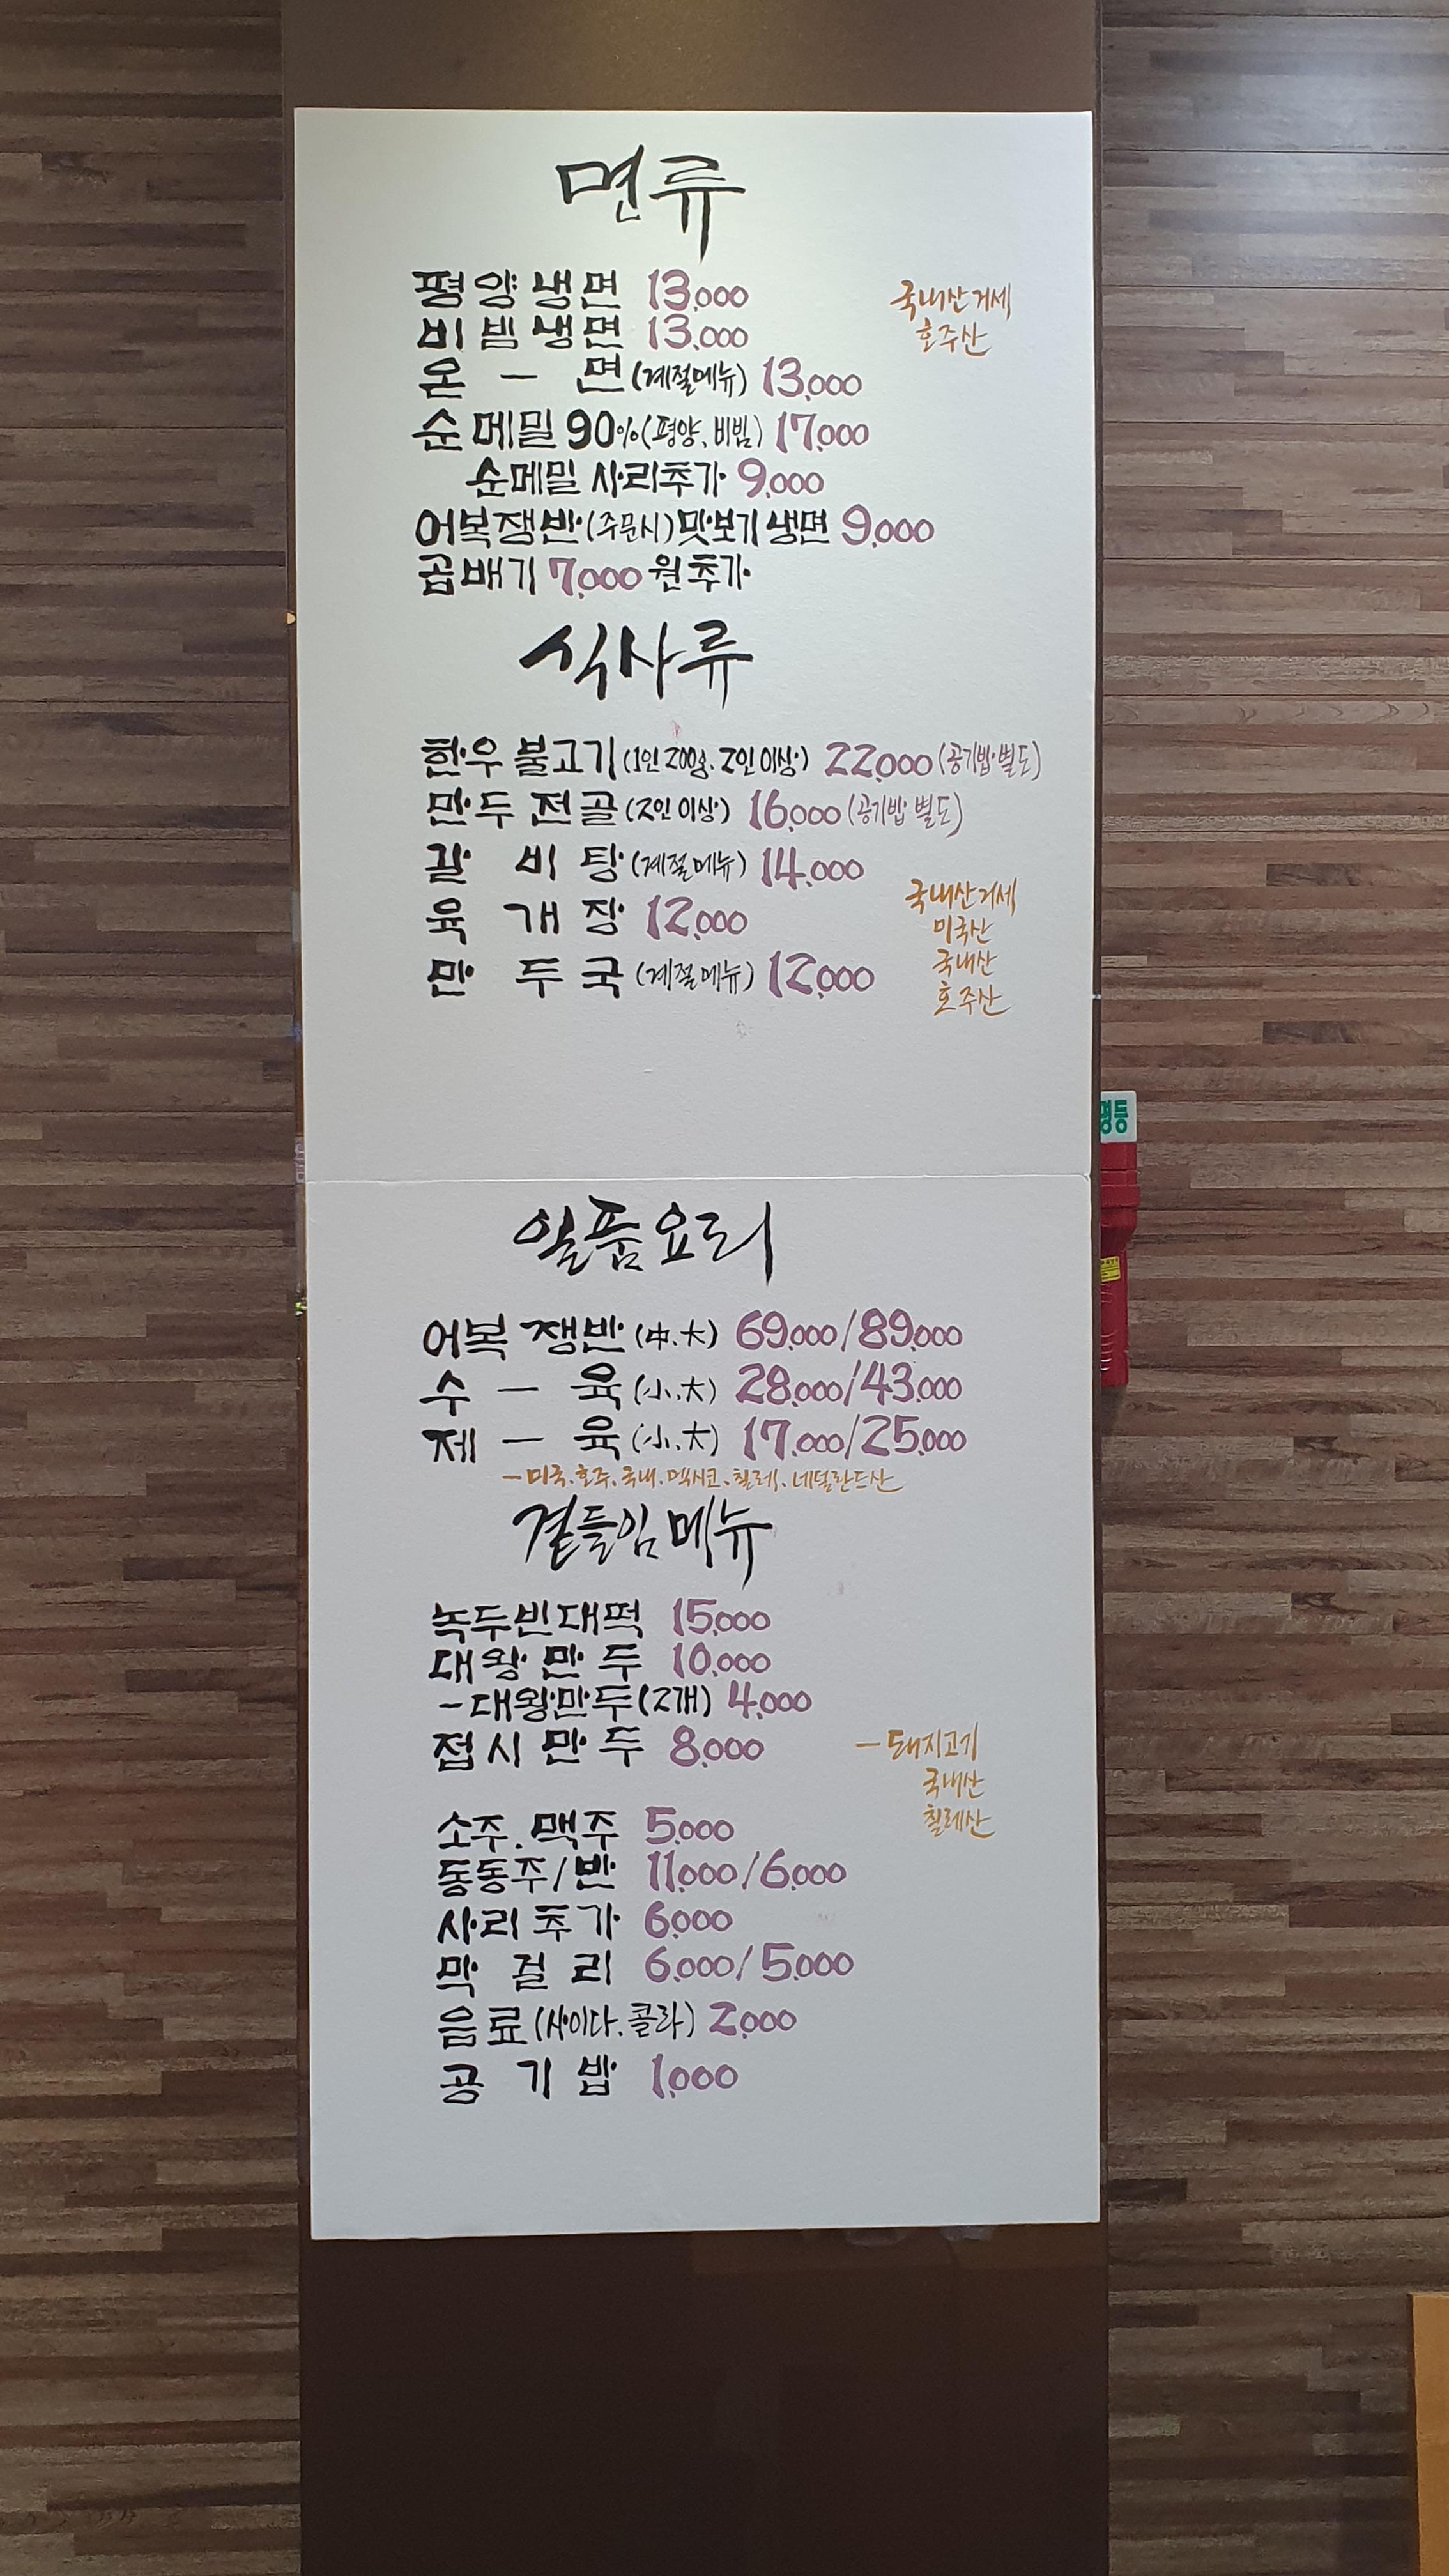 면류
평양냉면 13,000
국내산 거세
비빔냉면 13,000
호주산
온 - 면 (계절메뉴) 13,000
순메밀 90% (평양, 비빔) 17,000
순메밀 사리추가 9,000
어복쟁반 (주문시) 맛보기 냉면 9,000
곱배기 7,000 원 추가
식사류
한우 불고기 (1인 200g. 2인 이상) 22,000 (공기밥 별도)
만두 전골 (2인 이상) 16,000 (공기밥 별도)
갈 비 탕 (계절메뉴) 14,000
국내산거세
육 개 장 12,000
미국산
국내산
만 두 국 (계절메뉴) 12,000
호주산
일품요리
어복 쟁반 (中.大) 69,000/89,000
수 - 육 (小.大) 28,000/43,000
제 - 육 (小.大) 17,000/25,000
-미국.호주.국내.멕시코.칠레.네덜란드산
곁들임 메뉴
녹두빈대떡 15,000
대왕 만두 10,000
-대왕만두 (2개) 4,000
접시 만두 8,000
-돼지고기
국내산
칠레산
소주.맥주 5,000
동동주/반 11,000/6,000
사리 추가 6,000
막 걸 리 6,000/5,000
음료 (사이다.콜라) 2,000
공 기 밥 1,000
명등